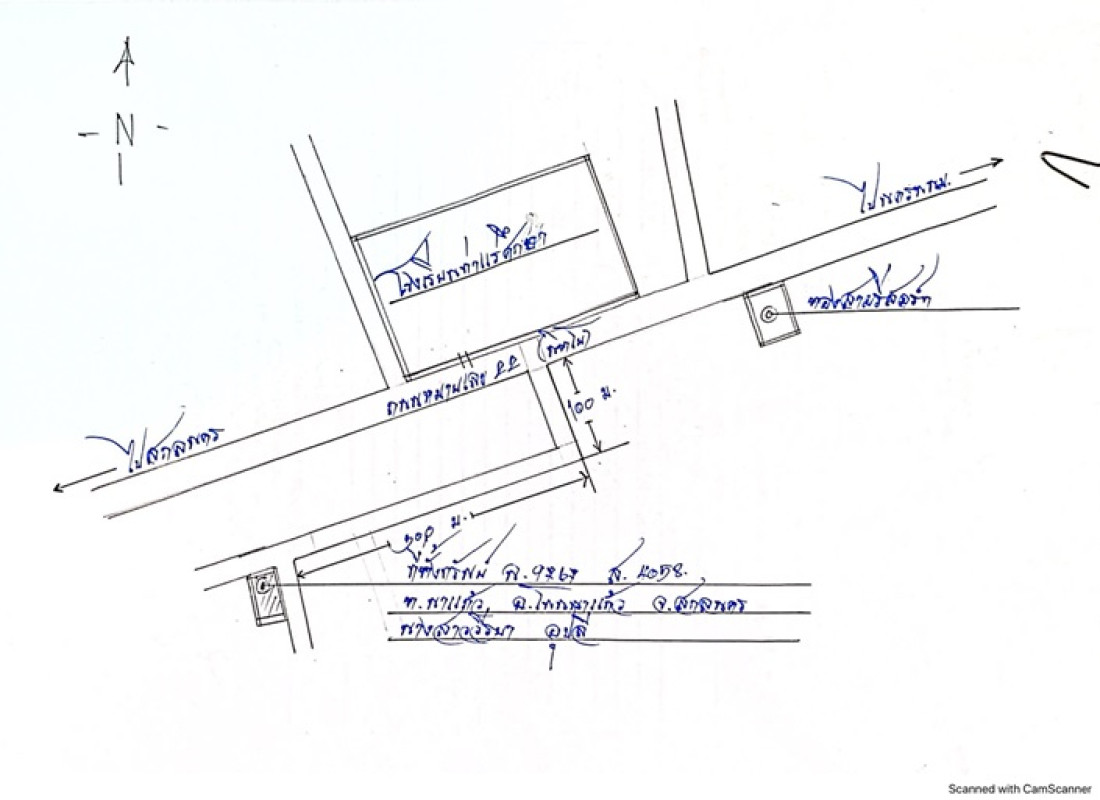 N
ไปนครพนม.
โรงเรียนท่าแร่ศึกษา
ทองสามรีสอร์ท
(นิตโย)
ถนนหมายเลข 22
100 ม.
ไปสกลนคร
ม.
ที่ตั้งทรัพย์
ต.นาแก้ว, อ.โพนนาแก้ว จ.สกลนคร
นางสาว
Scanned with CamScanner